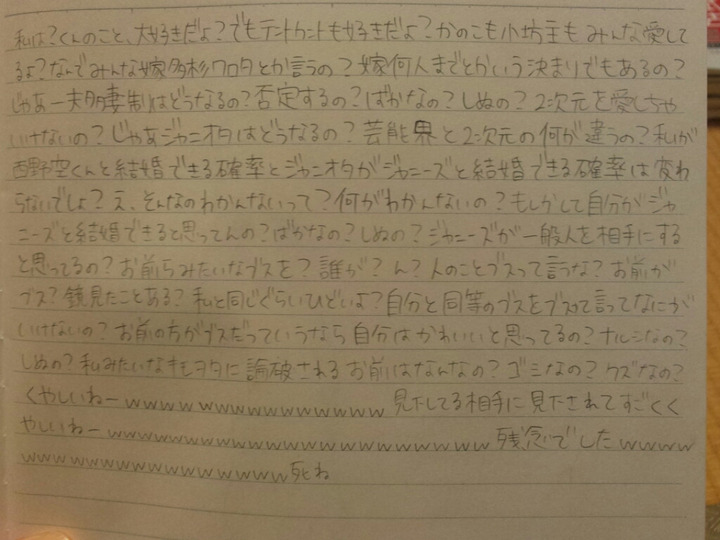 私は?くんのこと、大好きだよ?でもテントカントも好きだよ?かのこも小坊主もみんな愛して
るよ?なんでみんな嫁多杉ワロタとか言うの?嫁何人までとかいう決まりでもあるの?
じゃあ一夫多妻制はどうなるの?否定するの?ばかなの?しぬの?2次元を愛しちゃ
いけないの?じゃあジャニオタはどうなるの?芸能界と2次元の何が違うの?私が
西野空くんと結婚できる確率とジャニオタがジャニーズと結婚できる確率は変わ
らないでしょ?え、そんなのわかんないって?何がわかんないの?もしかして自分がジャ
ニーズと結婚できると思ってんの?ばかなの?しぬの?ジャニーズが一般人を相手にする
と思ってるの?お前らみたいなブスを?誰が?ん?人のことブスって言うな?お前が
ブス?鏡見たことある?私と同じぐらいひどいよ?自分と同等のブスをブスって言ってなにが
いけないの?お前の方がブスだっていうなら自分はかわいいと思ってるの?ナルシなの?
しぬの?私みたいなキモヲタに論破されるお前はなんなの?ゴミなの?クズなの?
くやしいねーwwwwwwwwwwwwwwww 見下してる相手に見下されてすごくく
やしいねーwwwwwwwwwwwwwwwwwwwwwwww残念でしたwwww
wwwwwwwwwwwwwwwww死ね